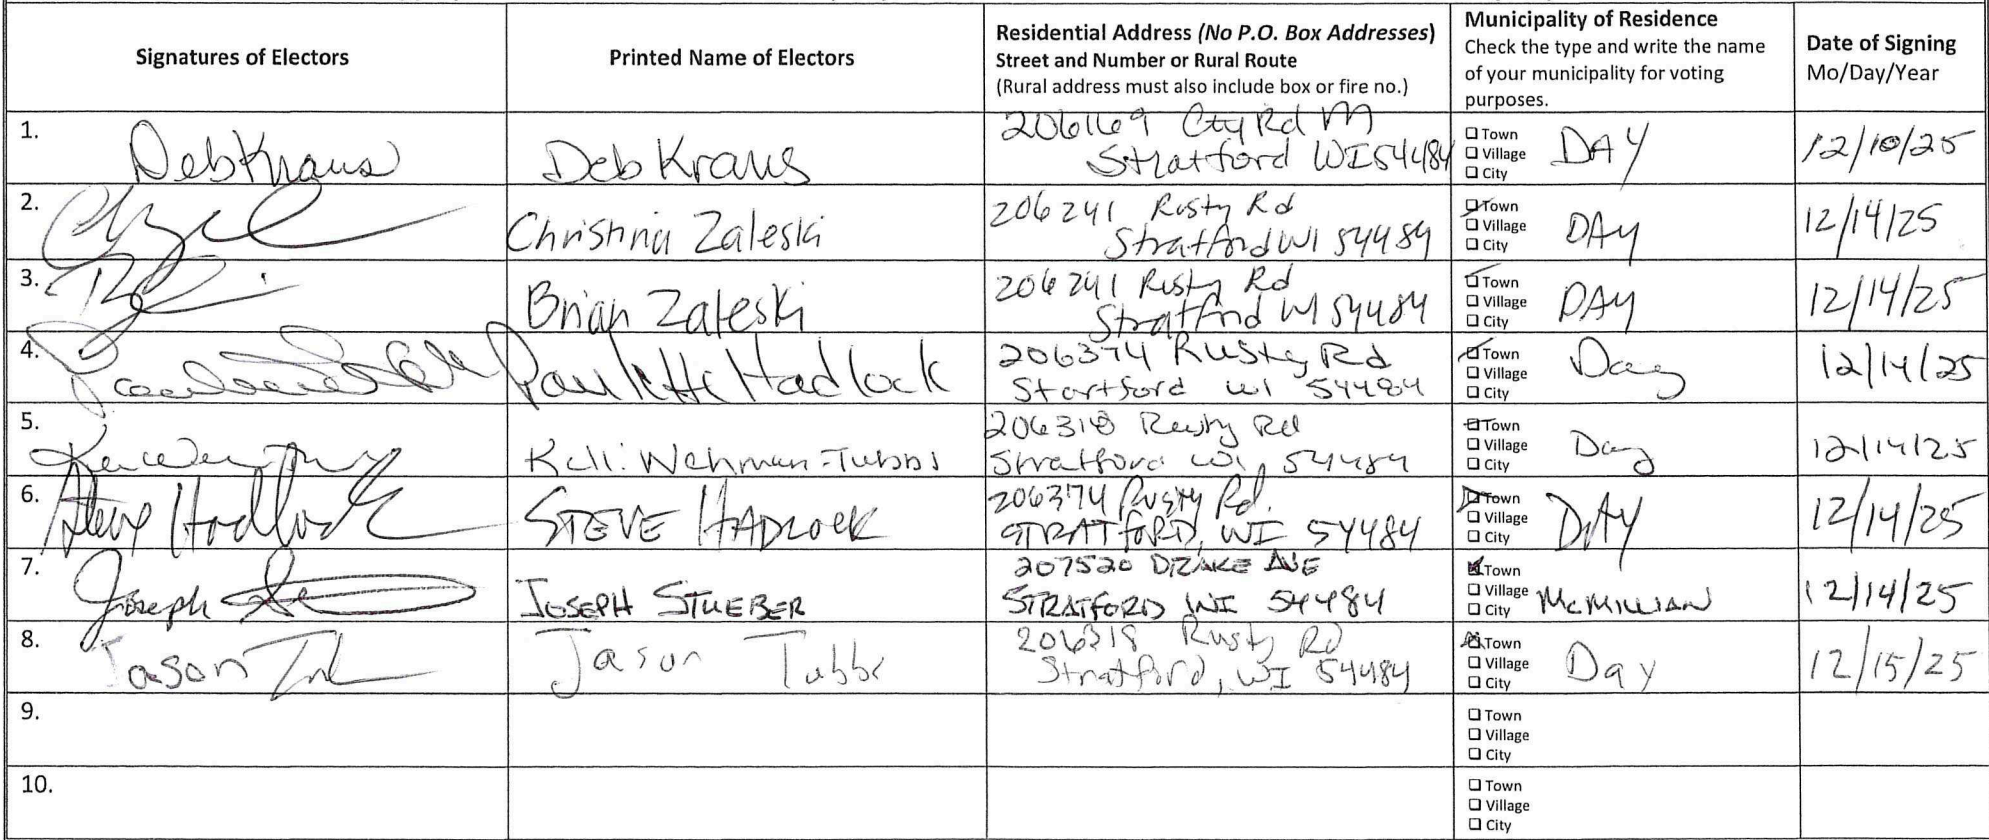 Signatures of Electors
Printed Name of Electors
Residential Address (No P.O. Box Addresses)
Street and Number or Rural Route
(Rural address must also include box or fire no.)
Municipality of Residence
Check the type and write the name
of your municipality for voting
purposes.
Date of Signing
Mo/Day/Year
1.
Deb Kraus
Deb Kraus
206169 Cty Rd M
Stratford WI 54484
Town
Village
City
DAY
12/10/25
2.
Christina Zaleski
206241 Rusty Rd
Stratford WI 54484
Town
Village
City
DAY
12/14/25
3.
Brian Zaleski
206241 Rusty Rd
Stratford WI 54484
Town
Village
City
DAY
12/14/25
4.
Paulette Hadlock
206374 Rusty Rd
Startford WI 54484
Town
Village
City
Day
12/14/25
5.
Kelli Wehrman-Tubbs
206318 Rusty Rd
Stratford WI, 54484
Town
Village
City
Day
12/14/25
6.
Steve Hadlock
STEVE HADLOCK
206374 Rusty Rd.
STRATFORD, WI 54484
Town
Village
City
DAY
12/14/25
7.
Joseph
JOSEPH STUEBER
207520 DRAKE AVE
STRATFORD WI 54484
Town
Village
City
McMILLIAN
12/14/25
8.
Jason
Jason Tubbs
206318 Rusty Rd
Stratford, WI 54484
Town
Village
City
Day
12/15/25
9.
Town
Village
City
10.
Town
Village
City